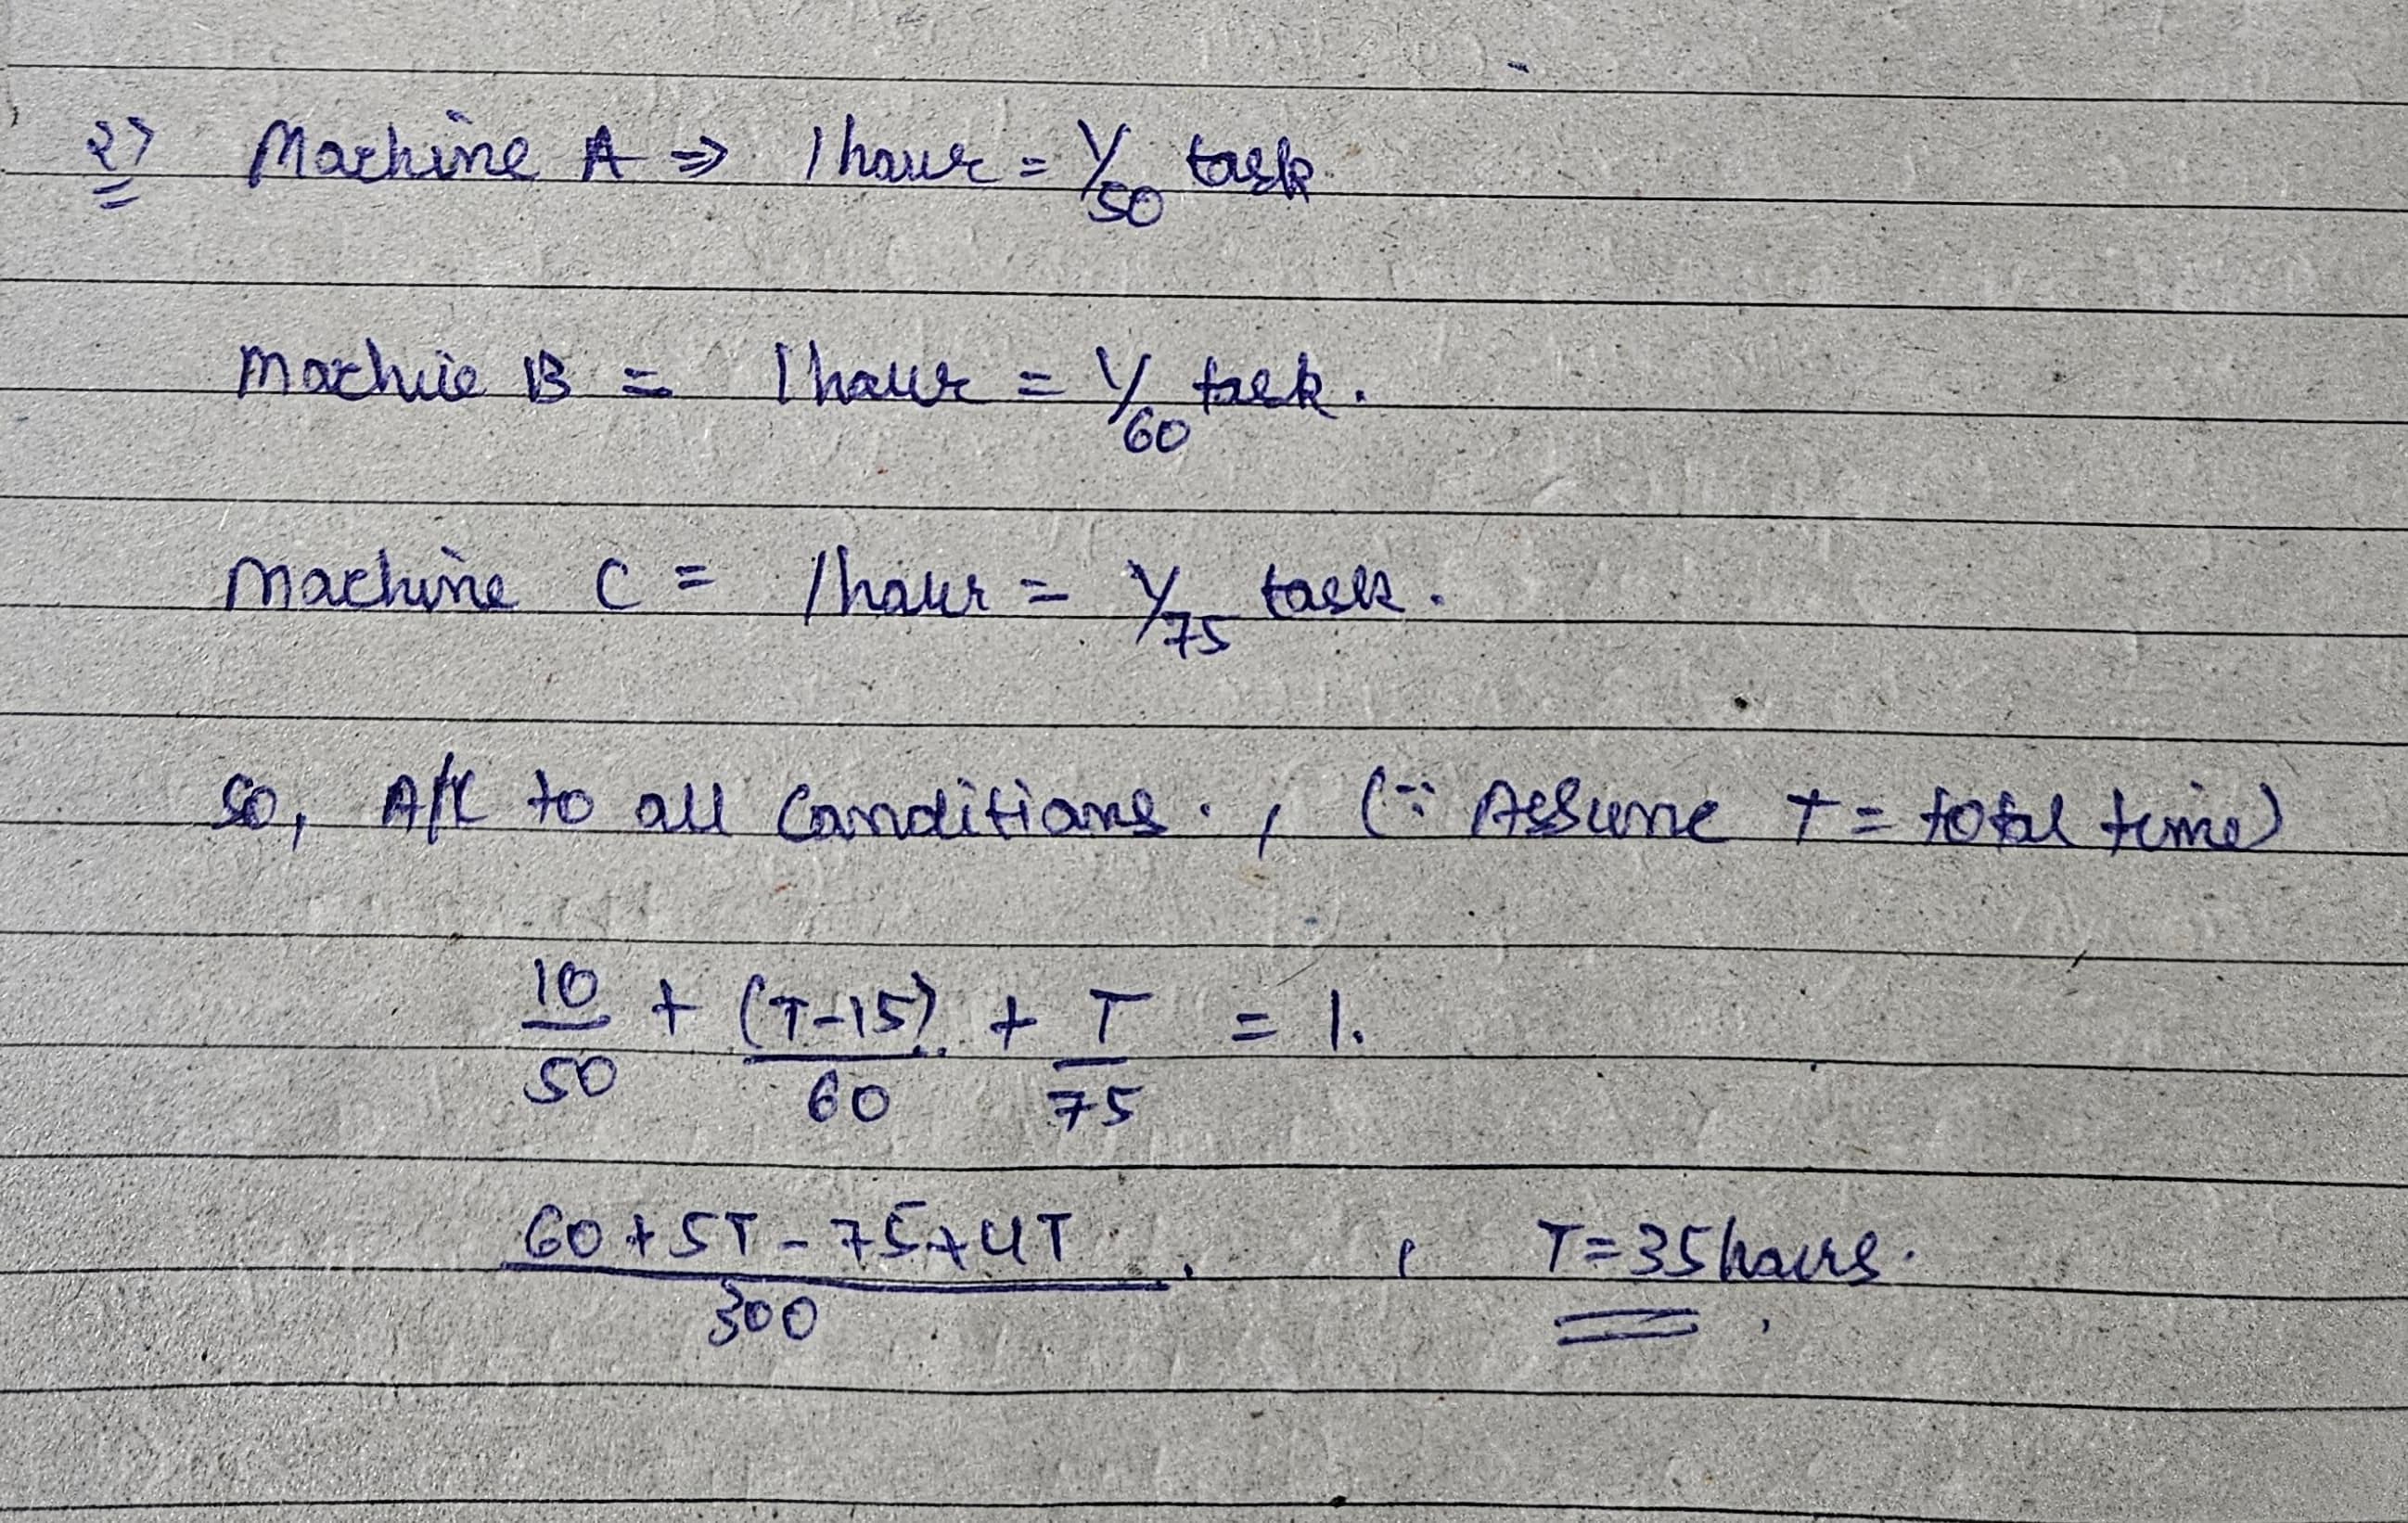 2) Machine A ⇒ 1 hour = 1/50 task
Machine B = 1 hour = 1/60 task.
Machine C = 1 hour = 1/75 task.
So, A/C to all Conditions. , (∵ Assume T = total time)
10/50 + (T-15)/60 + T/75 = 1.
(60 + 5T - 75 + 4T)/300 , T = 35 hours.